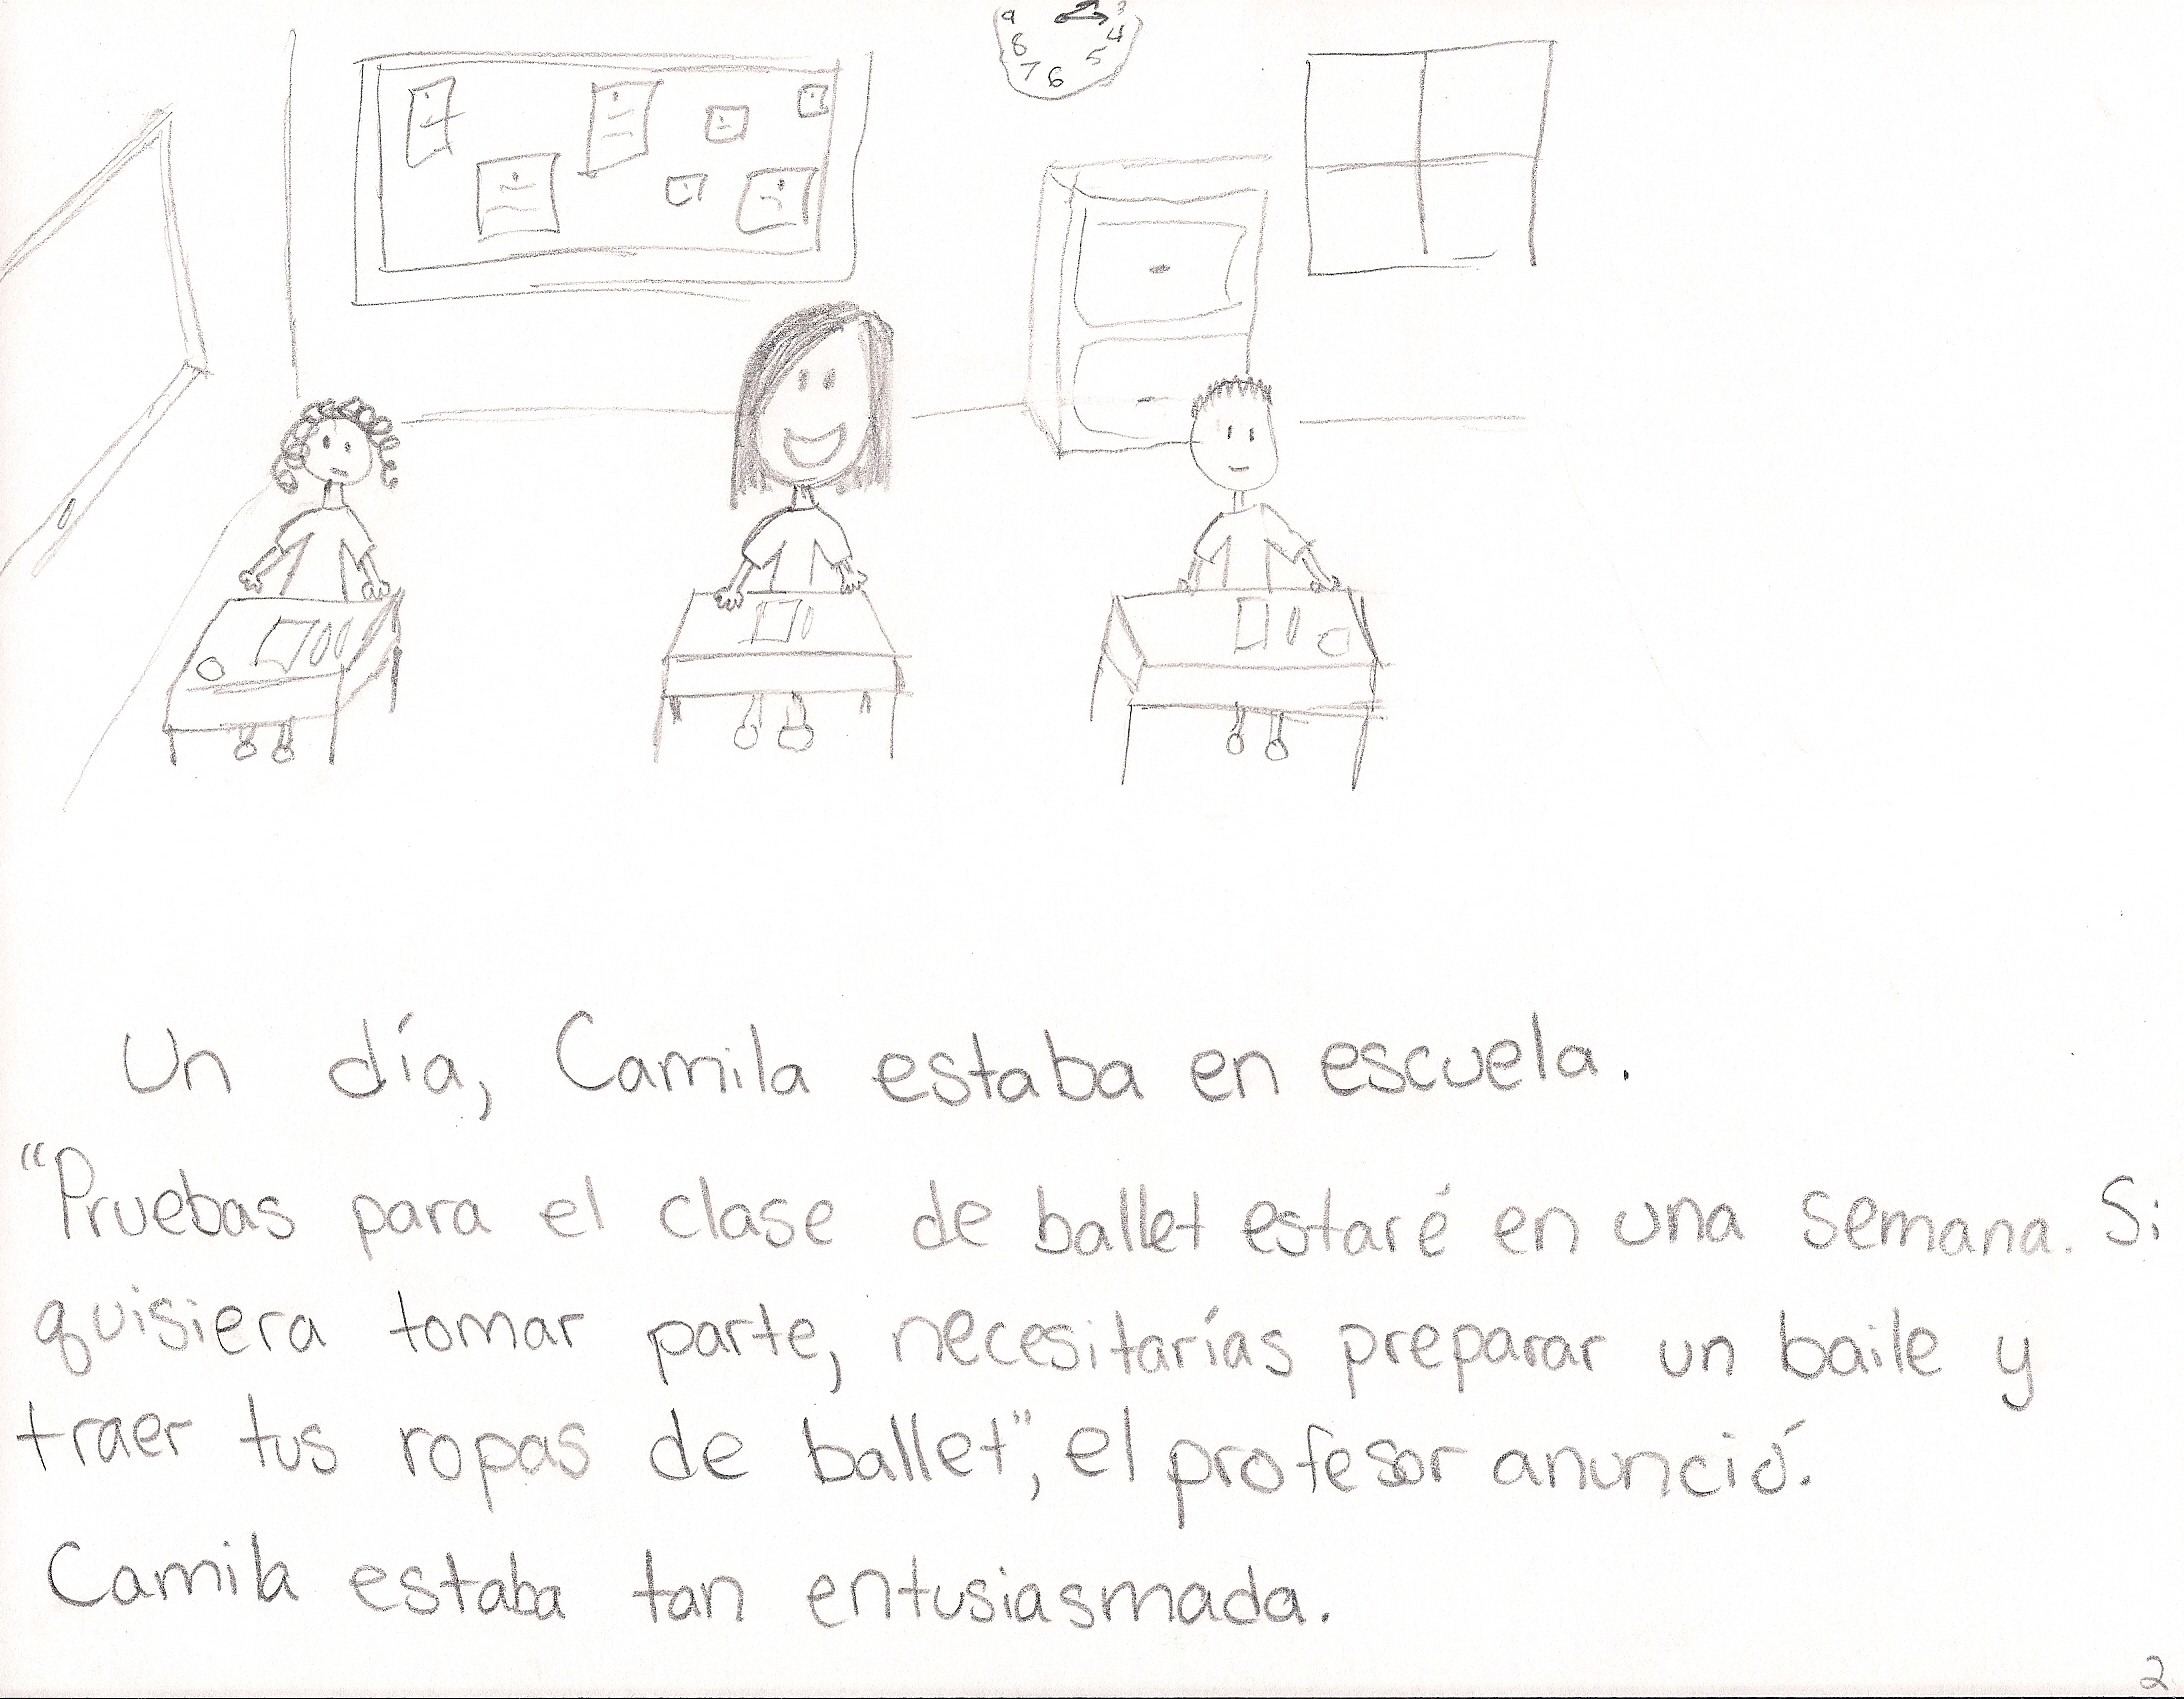 9 3
8 4
7 6 5
Un día, Camila estaba en escuela.
"Pruebas para el clase de ballet estaré en una semana. Si
quisiera tomar parte, necesitarías preparar un baile y
traer tus ropas de ballet", el profesor anunció.
Camila estaba tan entusiasmada.
2